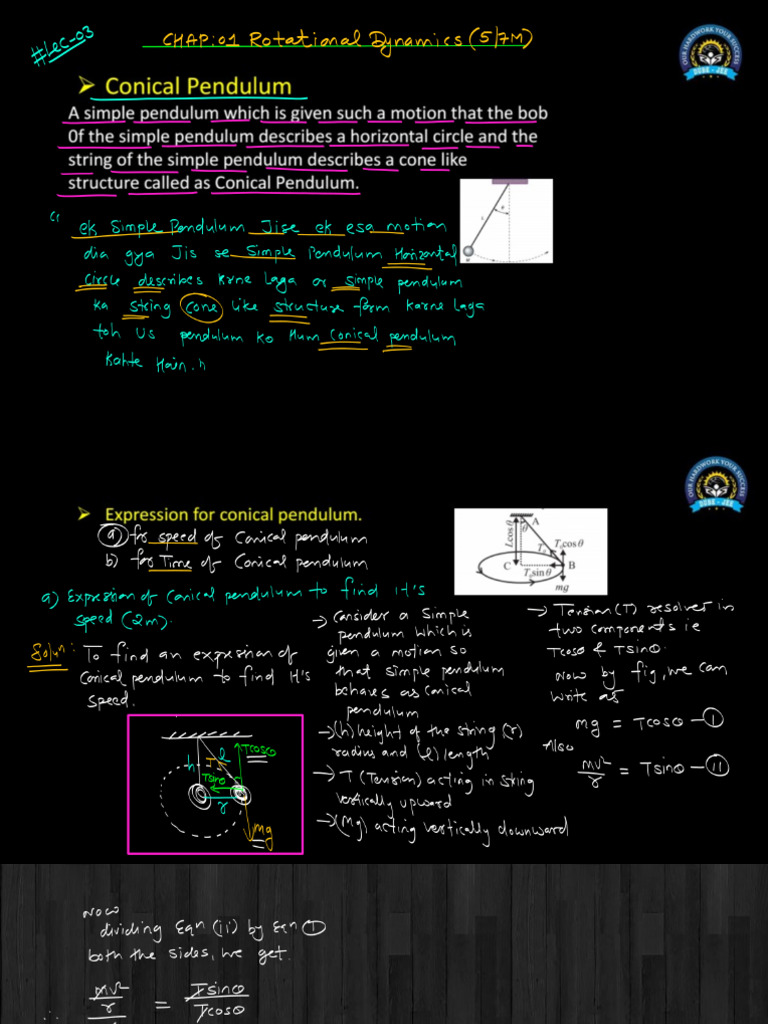 #Lec-03
CHAP:01 Rotational Dynamics (5/7M)
OUR HARDWORK YOUR SUCCESS
➤ Conical Pendulum
A simple pendulum which is given such a motion that the bob
0f the simple pendulum describes a horizontal circle and the
string of the simple pendulum describes a cone like
structure called as Conical Pendulum.
" ek Simple Pendulum Jise ek esa motion
dia gya Jis se Simple Pendulum Horizontal
Circle describes Krne laga or simple pendulum
ka string cone like structure form karne laga
toh us pendulum ko Hum Conical pendulum
Kahte Hain."
OUR HARDWORK YOUR SUCCESS
➤ Expression for conical pendulum.
a) for speed of Conical pendulum
b) for Time of Conical pendulum
A
θ
Lcosθ
T₀
T₀cosθ
C
B
T₀sinθ
mg
a) Expression of Conical pendulum to find It's
speed (2m).
Soluⁿ: To find an expression of
Conical pendulum to find It's
speed.
h
l
T
Tcosθ
Tsinθ
r
mg
→ Consider a Simple
pendulum which is
given a motion so
that simple pendulum
behaves as Conical
pendulum
→ (h) height of the string (r)
radius and (l) length
→ T (Tension) acting in string
vertically upward
→ (Mg) acting vertically downward
→ Tension (T) resolves in
two components ie
Tcosθ & Tsinθ.
Now by fig, we can
write as
mg = Tcosθ — I
Also
mv²/r = Tsinθ — II
Now
dividing Eqn (ii) by Eqn I
both the sides, we get.
∴ mv²/r = Tsinθ/Tcosθ